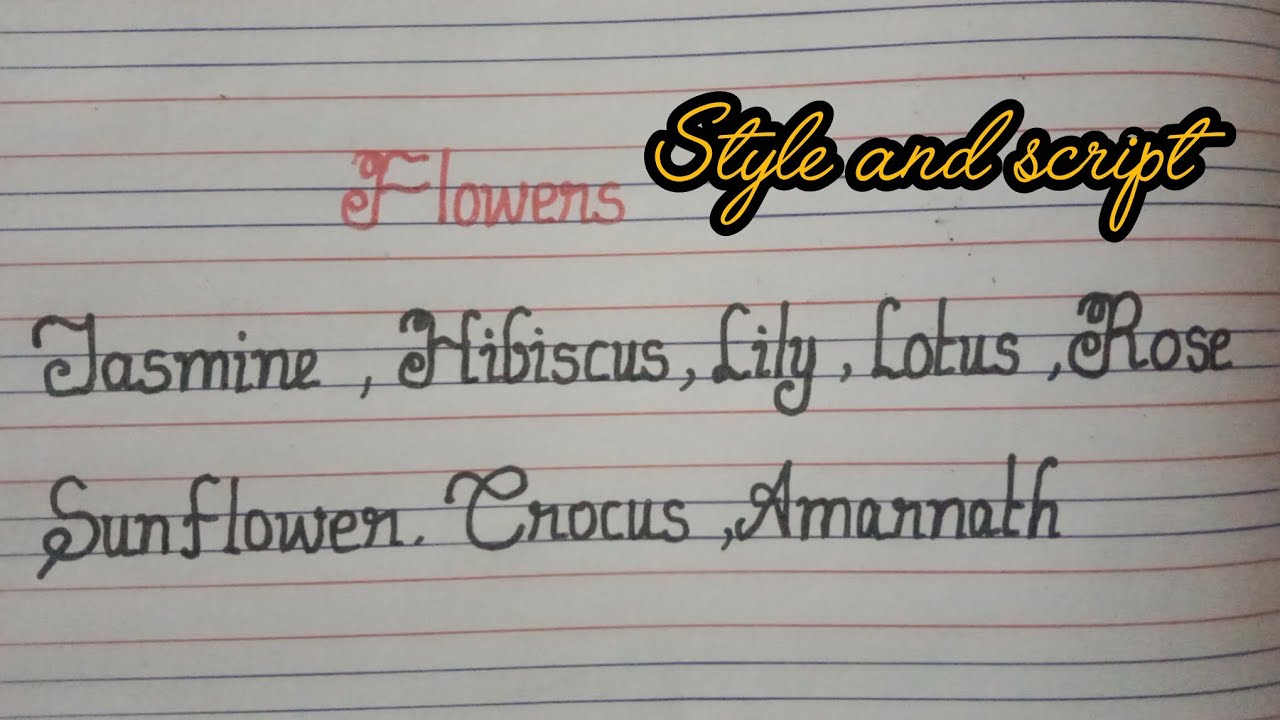 Style and script
Flowers
Jasmine , Hibiscus, Lily , Lotus , Rose
Sunflower. Crocus , Amarnath